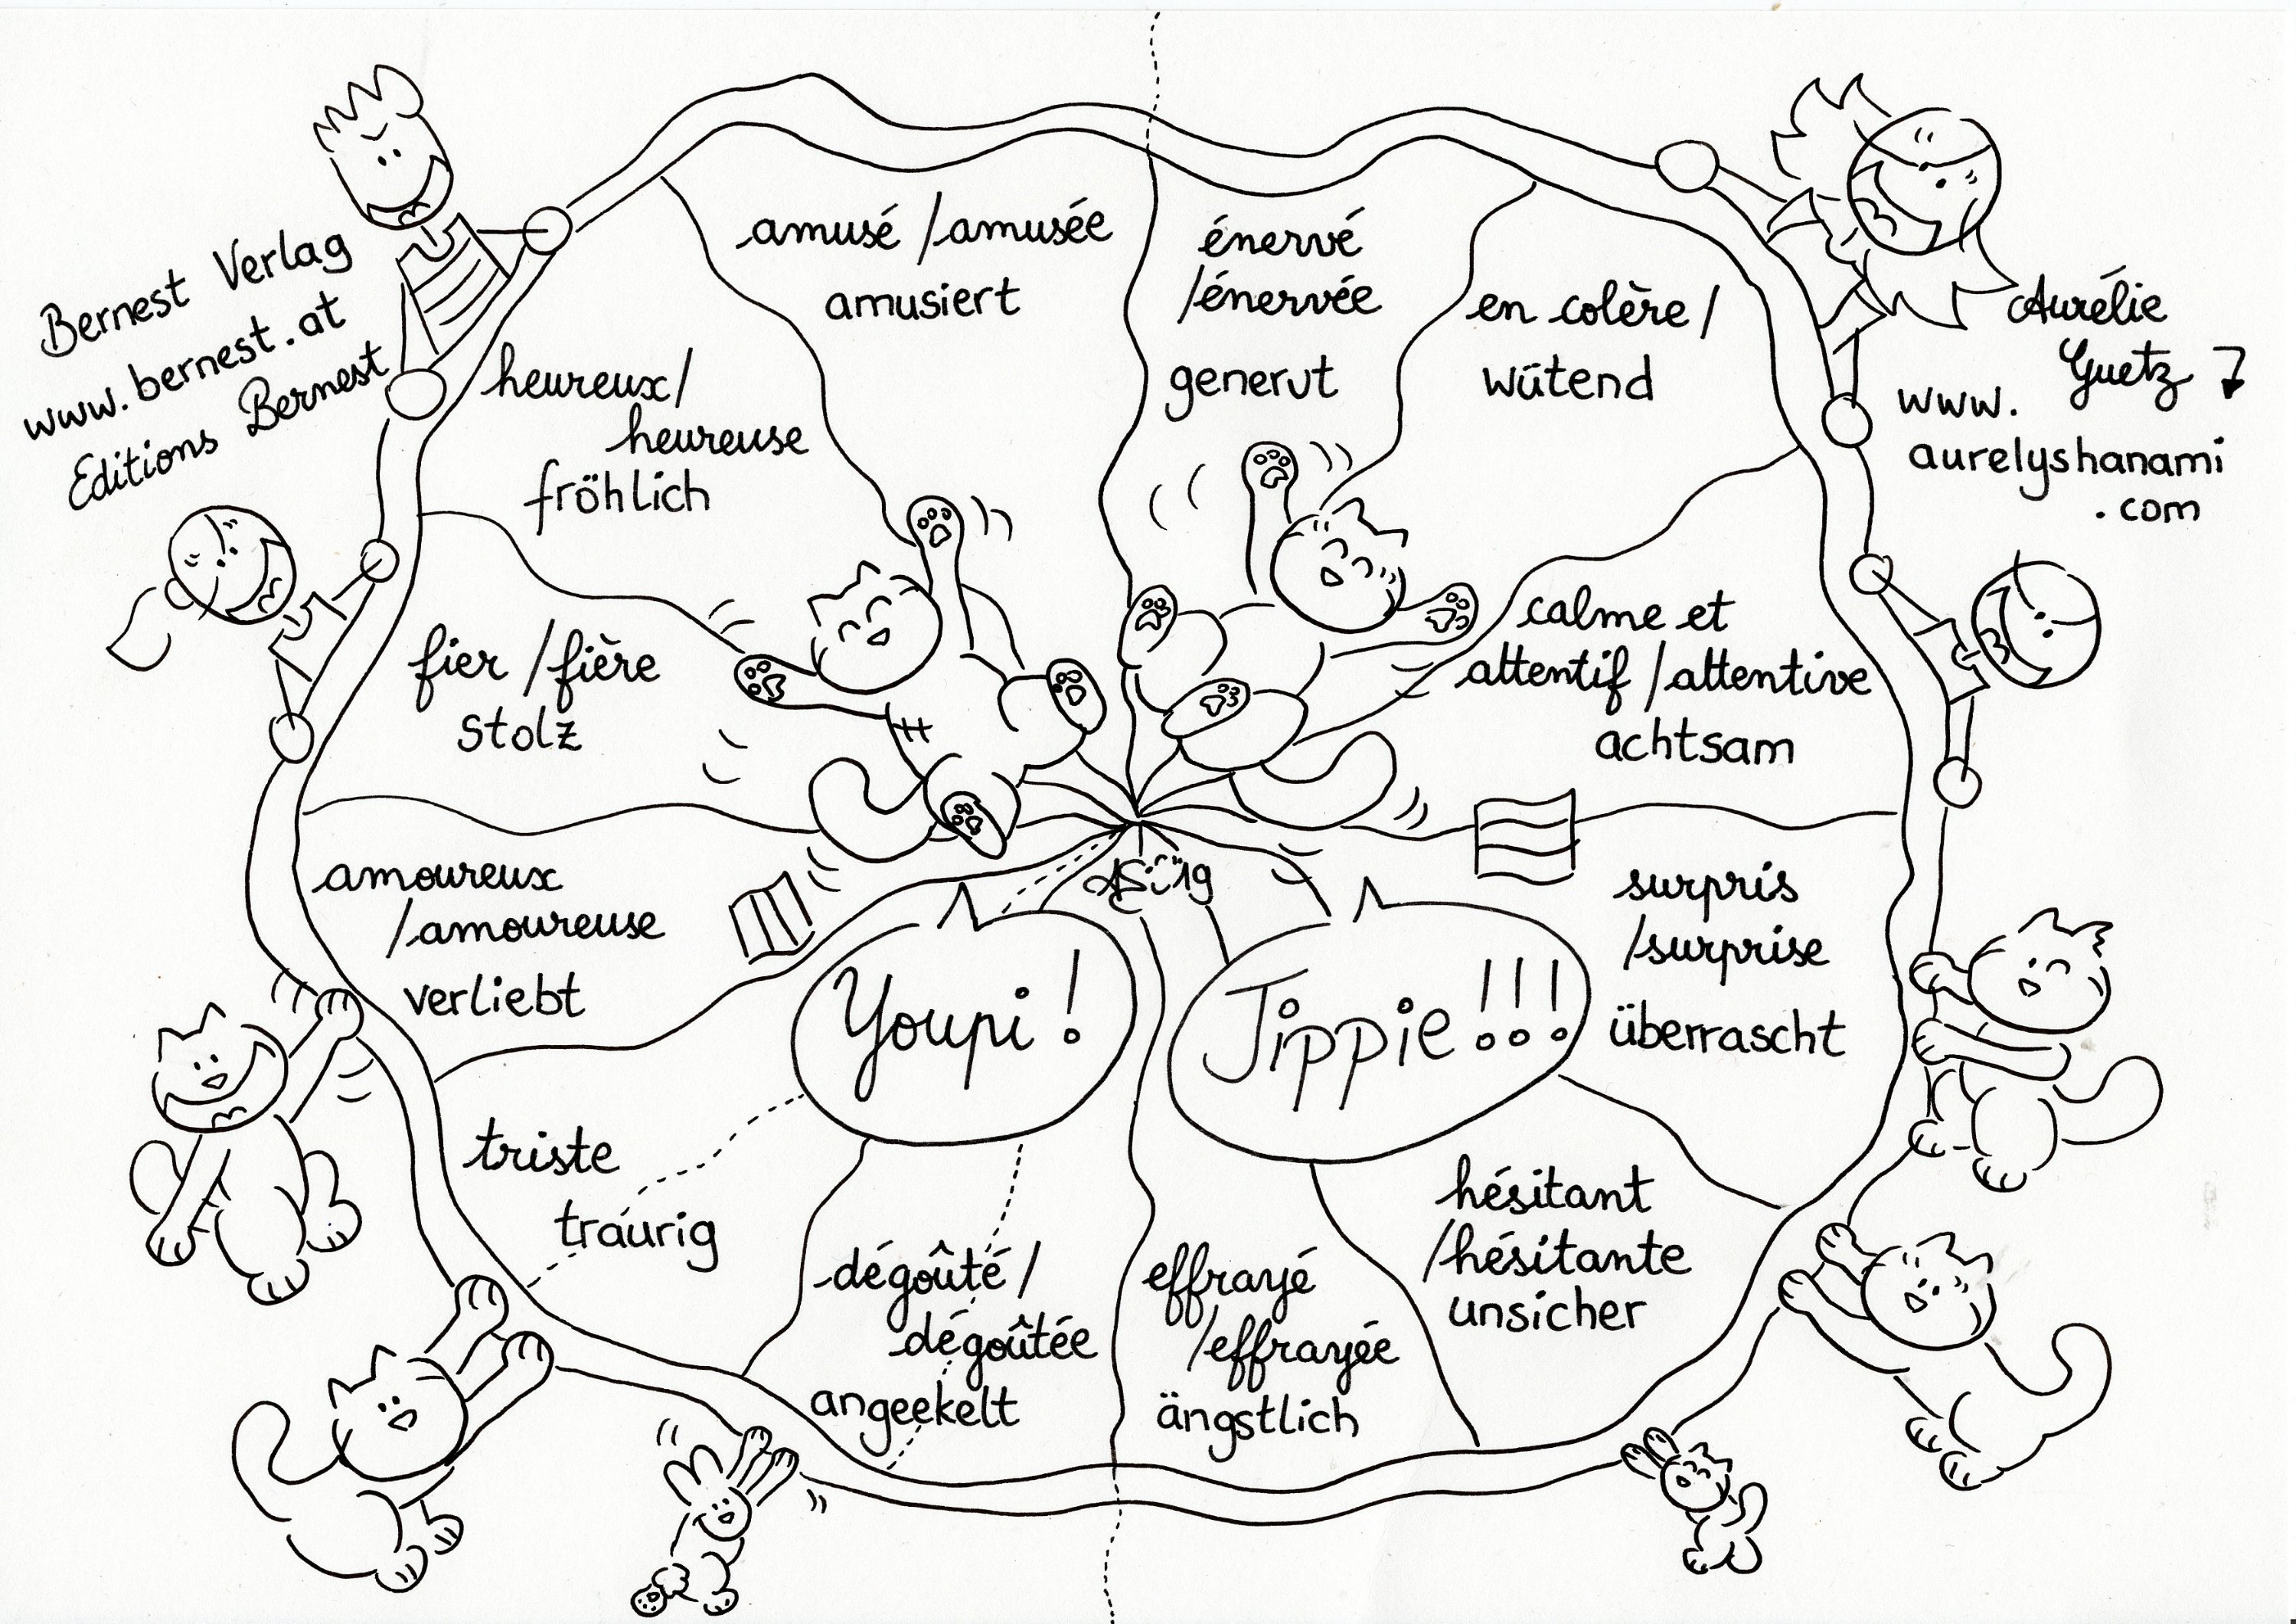 Bernest Verlag
www.bernest.at
Editions Bernest
Aurélie
Guetz
www.
aurelyshanami
.com
amusé / amusée
amusiert
énervé
/énervée
genervt
en colère /
wütend
heureux /
heureuse
fröhlich
calme et
attentif / attentive
achtsam
fier / fière
stolz
amoureux
/amoureuse
verliebt
surpris
/surprise
überrascht
Youpi !
Jippie !!!
triste
traurig
dégoûté /
dégoûtée
angeekelt
effrayé
/effrayée
ängstlich
hésitant
/hésitante
unsicher